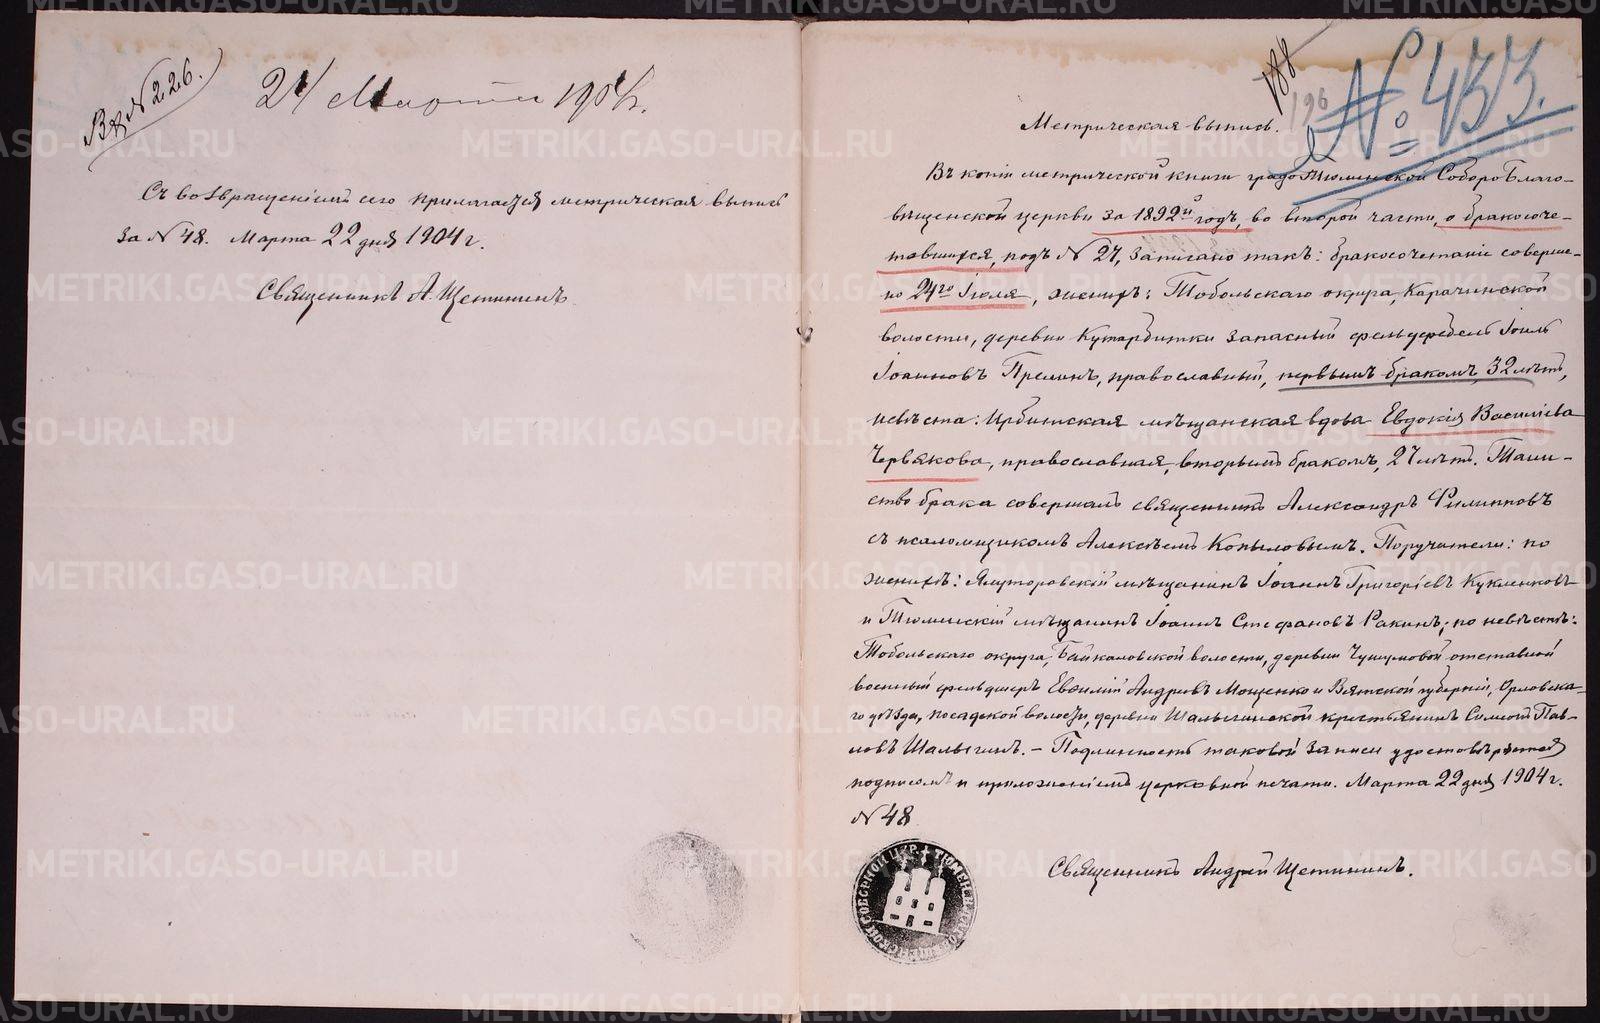 Вх № 226.
24 Марта 1904 г.
Съ возвращеніемъ сего прилагается метрическая выпись
за № 48. Марта 22 дня 1904 г.
Священникъ А. Щетининъ
188
196
№ 433.
Метрическая выпись.
Въ копіи метрической книги градо Тюменской Соборо Благо-
вѣщенской церкви за 1892й годъ, во второй части, о бракосоче-
тавшихся, подъ № 27, записано такъ: бракосочетаніе соверше-
но 24го Іюля, женихъ: Тобольскаго округа, Карачинской
волости, деревни Кутарбитки запасный фельдфебель Іоиль
Іоанновъ Прелинъ, православный, первымъ бракомъ, 32 лѣтъ,
невѣста: Ирбитская мѣщанская вдова Евдокія Василіева
Червякова, православная, вторымъ бракомъ, 27 лѣтъ. Таин-
ство брака совершалъ священникъ Александръ Филипповъ
съ псаломщикомъ Алексѣемъ Копыловымъ. Поручители: по
женихѣ: Ялуторовскій мѣщанинъ Іоаннъ Григоріевъ Кукленковъ
и Тюменскій мѣщанинъ Іоаннъ Стефановъ Ракинъ; по невѣстѣ:
Тобольскаго округа, Байкаловской волости, деревни отставной
военный фельдшеръ Евѳимій Андреевъ Мощенко и Вятской губерніи, Орловска-
го уѣзда, посадской волости, деревни Шалыгинской крестьянинъ Симеонъ Пав-
ловъ Шалыгинъ. – Подлинность таковой записи удостовѣряется
подписомъ и приложеніемъ церковной печати. Марта 22 дня 1904 г.
№ 48
Священникъ Андрей Щетининъ.
METRIKI.GASO-URAL.RU